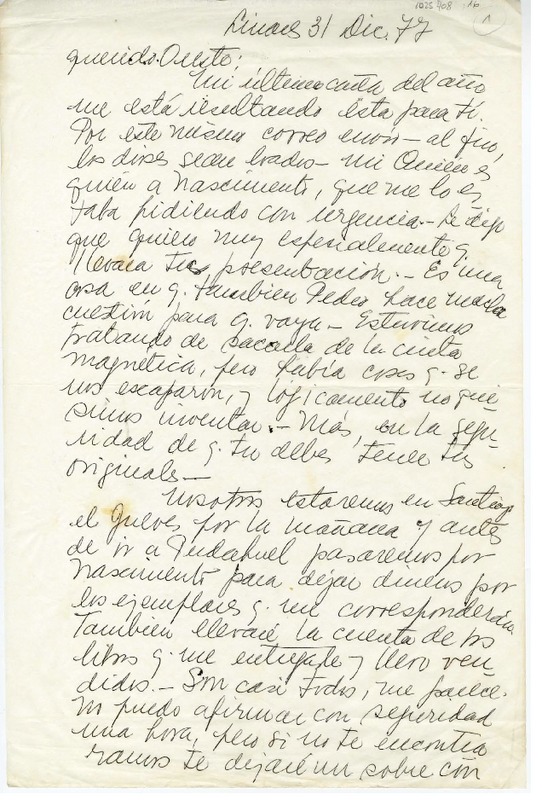 1025708
Linares 31 Dic. 77
querido Oreste:
Mi última carta del año
me está resultando ésta para ti.
Por este mismo correo envío - al fin,
los dioses sean loados - mi Quién es
quién a Nascimento, que me lo es
taba pidiendo con urgencia. - Le digo
que quiero muy especialmente q.
llevara tu presentación. - Es una
cosa en q. también Pedro hace mucha
cuestión para q. vaya - Estuvimos
tratando de sacarla de la cinta
magnética, pero había cosas q. se
nos escaparon, y lógicamente no qui-
simos inventar. - Mas, en la segu-
ridad de q. tú debes tener tus
originales -
Nosotros estaremos en Santiago
el jueves por la mañana y antes
de ir a Pudahuel pasaremos por
Nascimento para dejar dineros por
los ejemplares q. me corresponderán
También llevaré la cuenta de tus
libros q. me entregaste y llevo ven
didos. - Son casi todos, me parece.
No puedo afirmar con seguridad
una hora, pero si no te encontrá
ramos te dejaré un sobre con